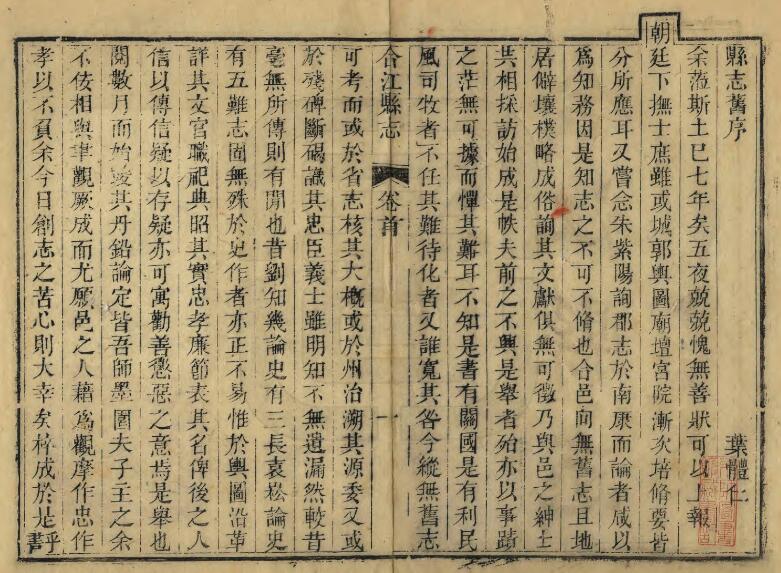 縣志舊序 葉體仁
余蒞斯土巳七年矣五夜兢兢愧無善狀可以上報
朝廷下撫士庶雖或城郭輿圖廟壇宮院漸次培脩要皆
分所應耳又嘗念朱紫陽詢郡志於南康而論者咸以
爲知務因是知志之不可不脩也合邑向無舊志且地
居僻壤樸略成俗詢其文獻俱無可徵乃與邑之紳士
共相採訪始成是帙夫前之不興是舉者殆亦以事蹟
之茫無可據而憚其難耳不知是書有關國是有利民
風司牧者不任其難待化者又誰寬其咎今縱無舊志
合江縣志 卷首 一
可考而或於省志核其大概或於州治溯其源委又或
於殘碑斷碣識其忠臣義士雖明知不無遺漏然較昔
毫無所傳則有閒也昔劉知幾論史有三長袁崧論史
有五難志固無殊於史作者亦正不易惟於輿圖沿革
詳其文官職祀典昭其實忠孝廉節表其名俾後之人
信以傳信疑以存疑亦可寓勸善懲惡之意焉是舉也
閱數月而始竣其丹鉛論定皆吾師墨圃夫子主之余
不佞相與聿觀厥成而尤願邑之人藉爲觀摩作忠作
孝以不負余今日創志之苦心則大幸矣梓成於是乎書